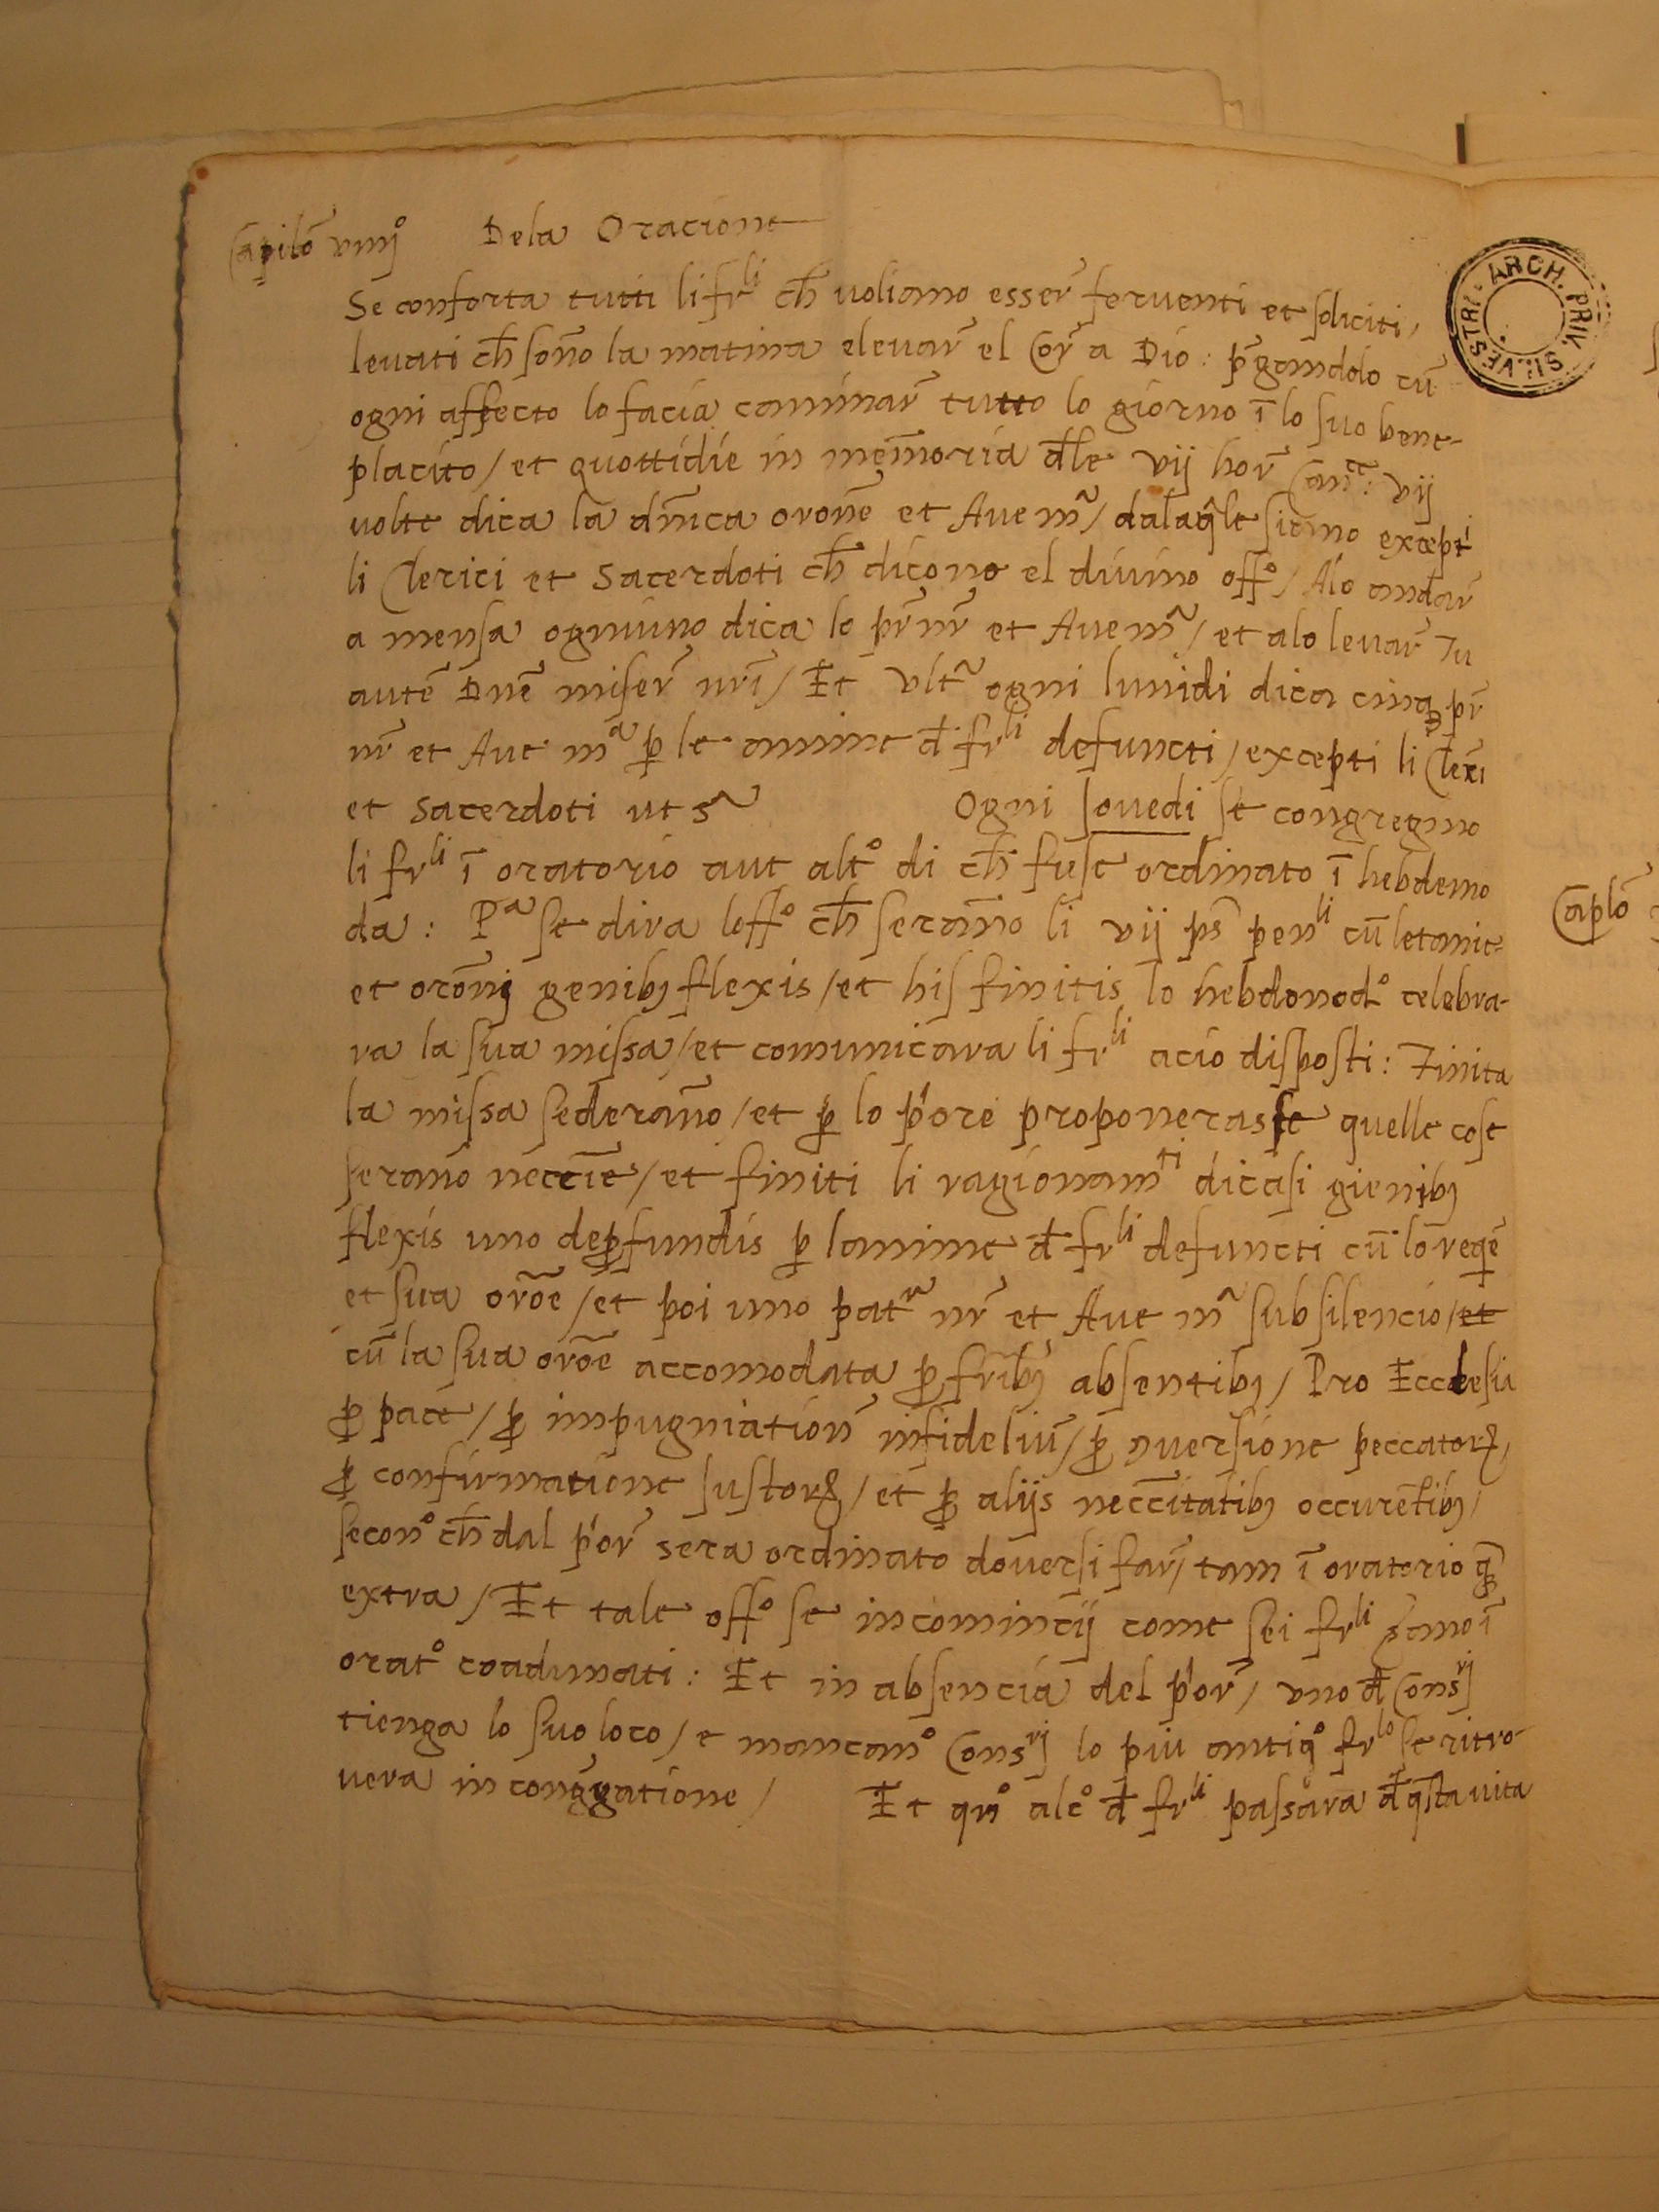 Capilō viiijº Dela Oracione
Se conforta tutti li frˡⁱ ch̄ uoliamo esser̄ feruenti et soliciti,
leuati ch̄ sōno la matina eleuar̄ el Cor̄ a Dio : p̄gandolo cū
ogni affecto lo facia caminar̄ tutto lo giorno ī lo suo bene-
placito / et quottidie in mem̄oria đle vij hor̄ Can̄ᶜᵉ: vij
uolte dica la dn̄ica oronē et Aue m̃ / dalaq̄le siemo excepti
li Clerici et Sacerdoti ch̄ dicono el diuino offº / Alo andar̄
a mensa ogniuno dica lo pr̄ nr̄ et Aue m̃ / et alo leuar̄ Tu
autē Dnē miser̄ nr̄i / Et vltᵃ ogni lunidi dica cinq̨ pr̄
nr̄ et Aue mᵃ ꝑ le anime đ frˡⁱ defuncti / excepti li Clēri
et Sacerdoti ut sᵃ Ogni Jouedi se congregino
li frˡⁱ ī oratorio aut altº di ch̄ fuse ordinato ī hebdemo
da : Pᵃ se dira loffº ch̄ serāno li vij ps̄ penˡⁱ cū letanie
et orōnj genibȝ flexis / et his finitis lo hebdonodº celebra-
ra la sua missa / et comunicara li frˡⁱ acio disposti : Finita
la missa sederāno / et ꝑ lo p'ore proponerasse quelle cose
serāno neccīe / et finiti li ragionamᵗⁱ dicasi gienibȝ
flexis uno deꝓfundis ꝑ lanime đ frˡⁱ defuncti cū lo reqē
et sua orōe / et poi uno patʳ nr̄ et Aue m̃ sub silencio / et
cū la sua orōe accomodata ꝓ fr̄ibȝ absentibȝ / Pro Ecclesia
ꝓ pace / ꝓ impugniation̄ infideliū / ꝓ ꝯuersione peccatorꝝ,
ꝓ confirmatione Justorꝝ / et ꝓ alijs neccītatibȝ occurētibȝ /
seconº ch̄ dal p'or̄ sera ordinato douersi far̄ / tam ī oratorio q̄
extra / Et tale offº se incomincij come sei frˡⁱ sano ī
oratº coadunati : Et in absencia del p'or̄ / vno đ Consʳʲ
tienga lo suo loco / e mancanº Consʳʲ lo piu antiqº frˡº se ritro-
uera in congregatione / Et qn̄º alcº đ frˡⁱ passara đ q̄sta uita
ARCH. PRIV. SILVESTRI
Caplō